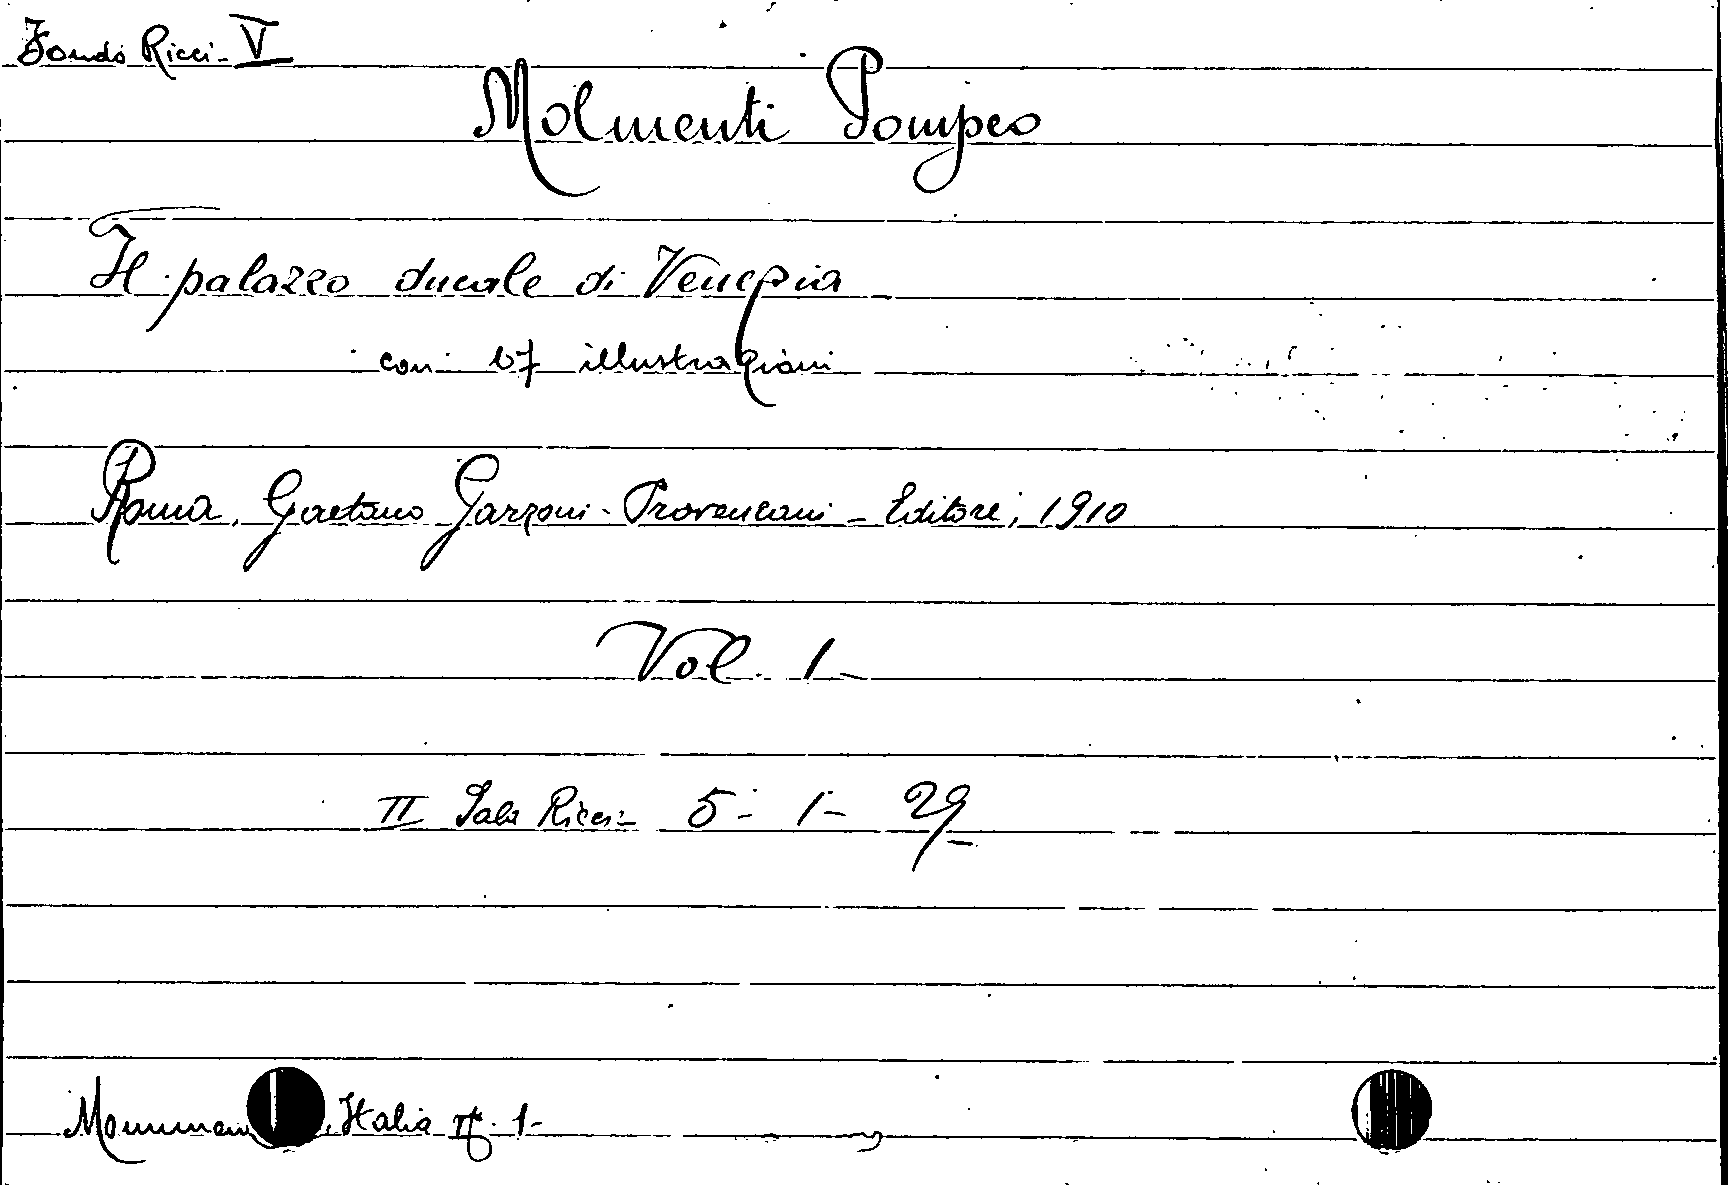 Fondo Ricci - V
Molmenti Pompeo
Il palazzo ducale di Venezia
con 67 illustrazioni
Roma, Gaetano Garzoni - Provenzani - Editore, 1910
Vol. 1 -
II Sala Ricci - 5 - 1 - 29
Italia 1 -